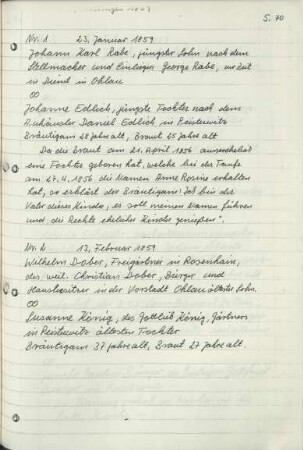 S. 70
Nr. 1 23. Januar 1859
Johann Karl Rabe, jüngster Sohn nach dem
Stellmacher und Einlieger George Rabe, zur Zeit
in Dienst in Ohlau
∞
Johanne Edlich, jüngste Tochter nach dem
Auhäusler Daniel Edlich in Peisterwitz
Bräutigam 28 Jahre alt, Braut 25 Jahre alt
Da die Braut am 21. April 1856 außerehelich
eine Tochter geboren hat, welche bei der Taufe
am 27.4.1856 die Namen Anne Rosine erhalten
hat, so erklärt der Bräutigam: Ich bin der
Vater dieses Kindes; es soll meinen Namen führen
und die Rechte ehelicher Kinder genießen".
Nr. 2 13. Februar 1859
Wilhelm Dober, Freigärtner in Rosenhain,
des weil. Christian Dober, Bürger und
Hausbesitzer in der Vorstadt Ohlau ältester Sohn.
∞
Susanne König, des Gottlieb König, Gärtners
in Peisterwitz ältesten Tochter
Bräutigam 37 Jahre alt, Braut 27 Jahre alt.